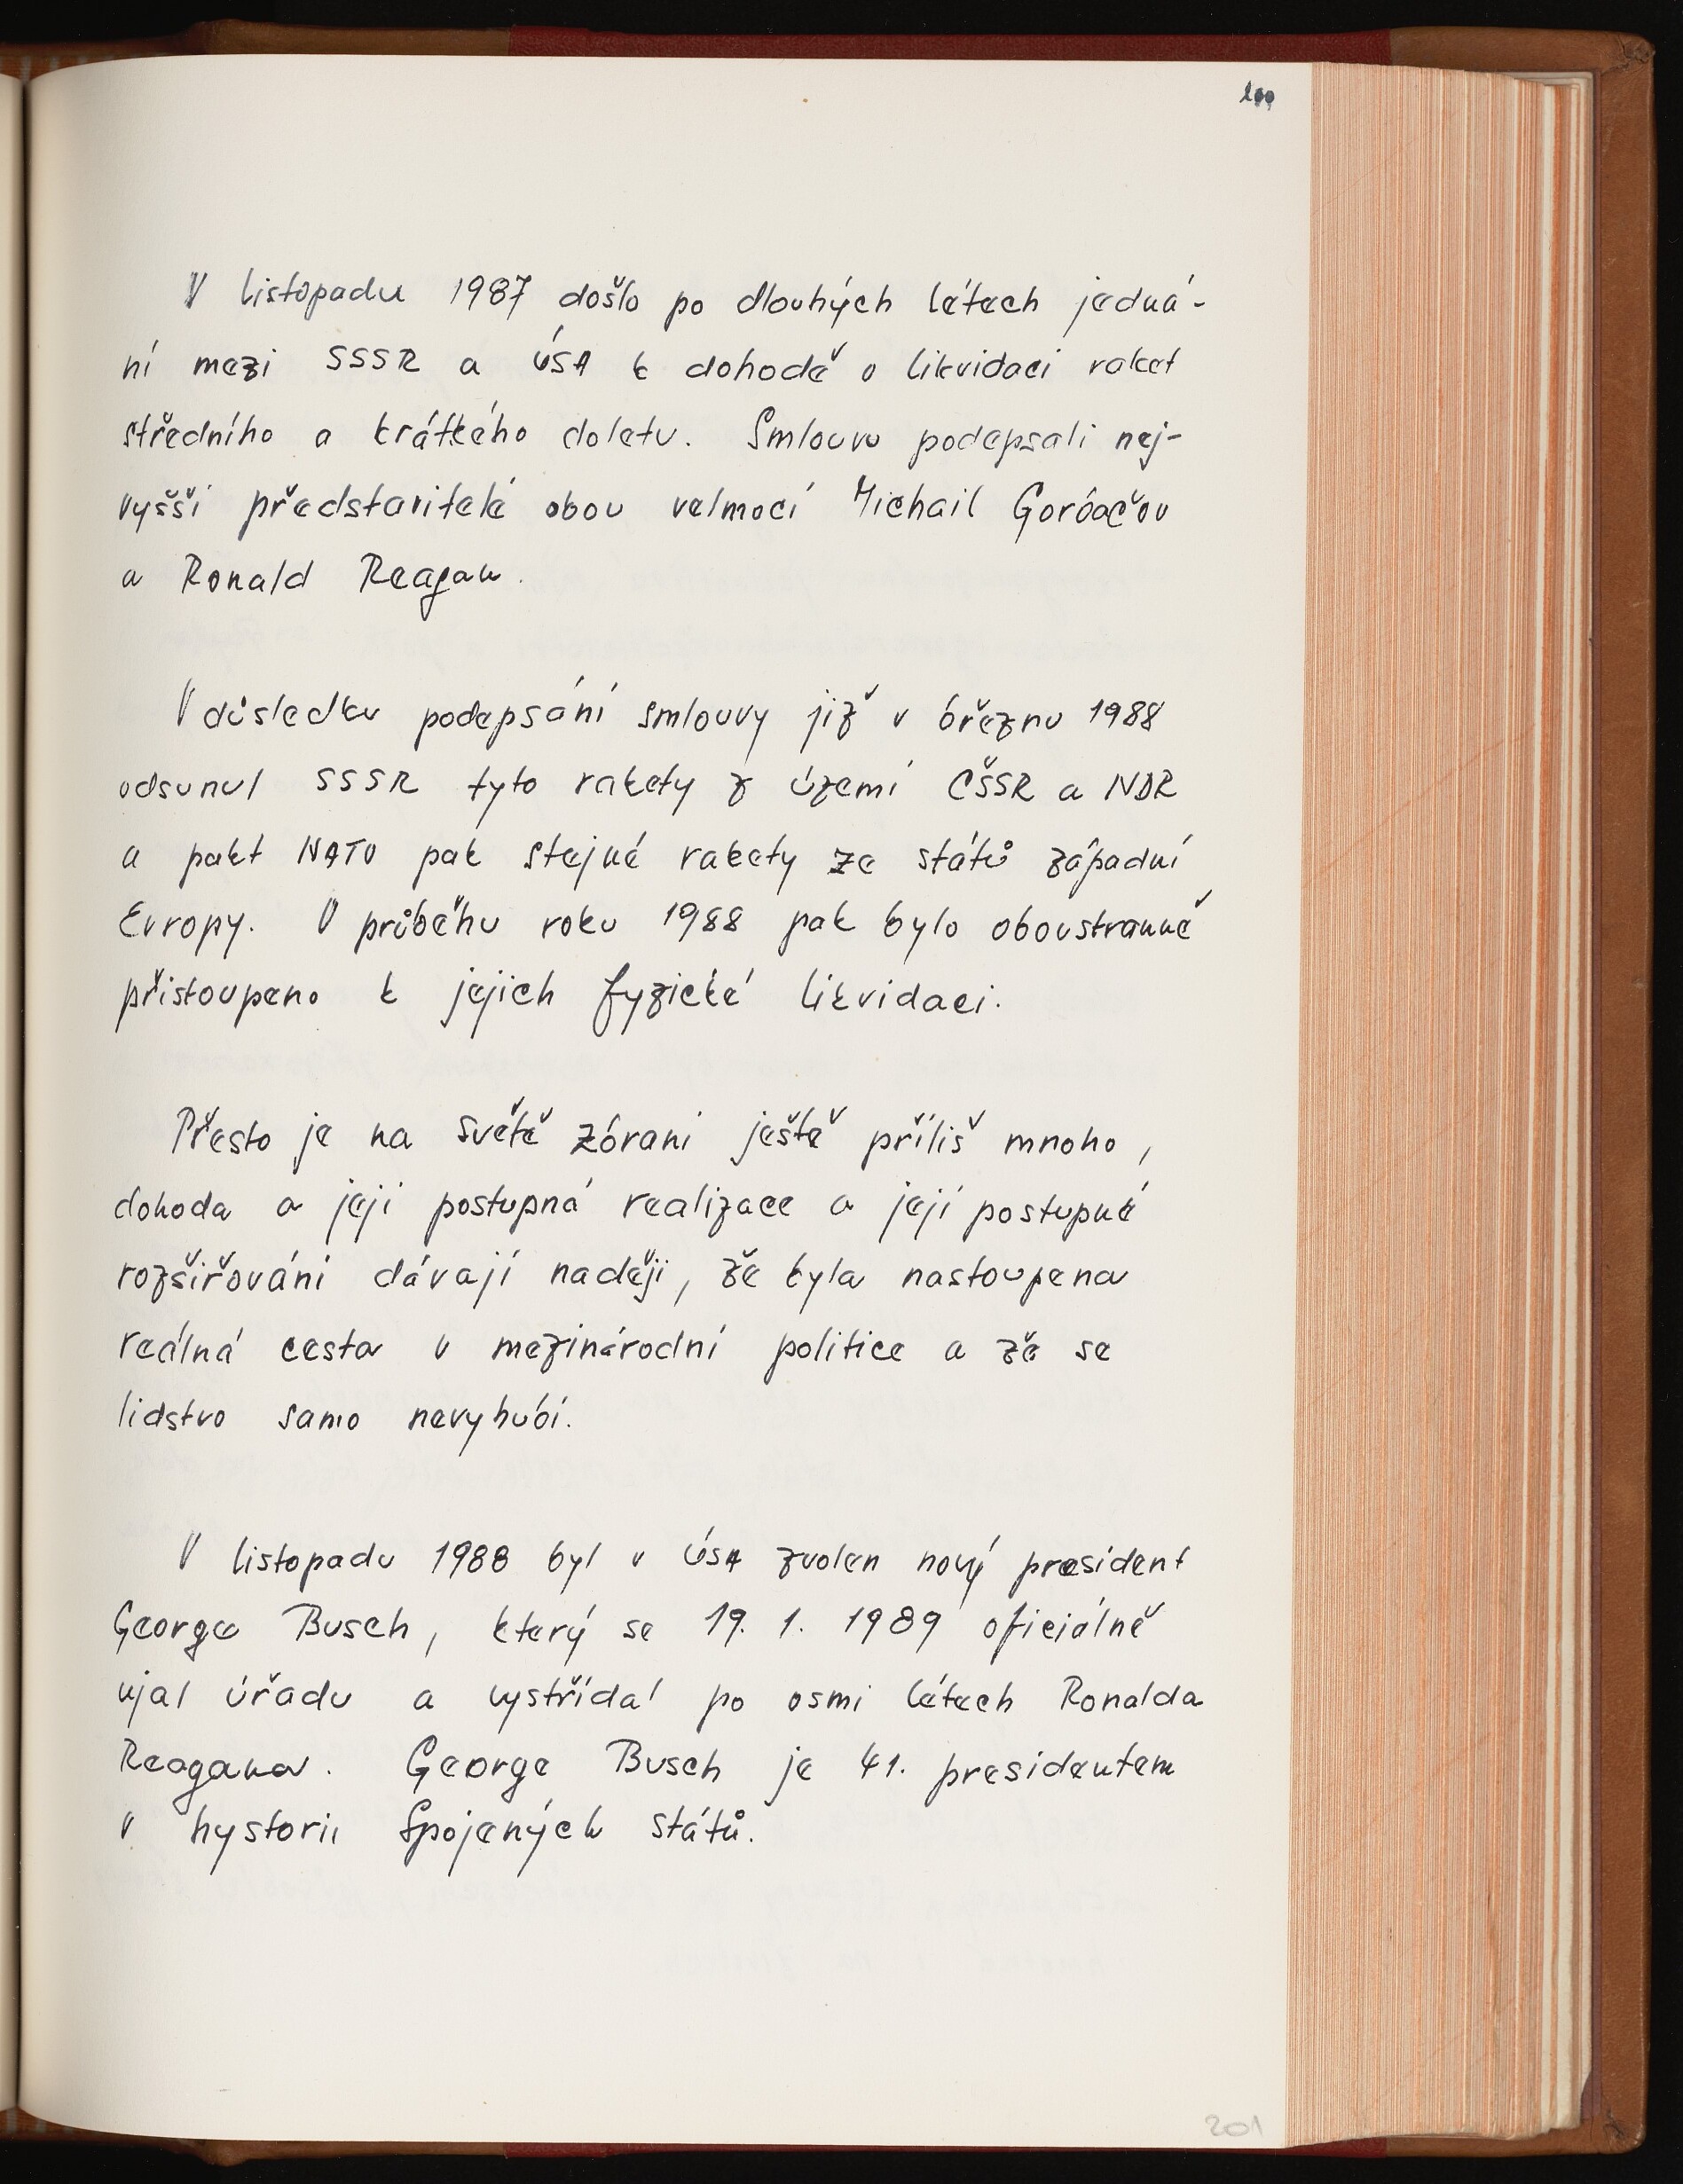 200
V listopadu 1987 došlo po dlouhých létech jedná-
ní mezi SSSR a ÚSA k dohodě o likvidaci raket
středního a krátkého doletu. Smlouvu podepsali nej-
vyšší představitelé obou velmocí Michail Gorbačov
a Ronald Reagan.
V důsledku podepsání smlouvy již v březnu 1988
odsunul SSSR tyto rakety z území ČSSR a NDR
a pakt NATO pak stejné rakety ze států západní
Evropy. V průběhu roku 1988 pak bylo oboustranně
přistoupeno k jejich fyzické likvidaci.
Přesto je na světě zbraní ještě příliš mnoho,
dohoda a její postupná realizace a její postupné
rozšiřování dávají naději, že byla nastoupena
reálná cesta v mezinárodní politice a že se
lidstvo samo nevyhubí.
V listopadu 1988 byl v ÚSA zvolen nový president
George Busch, který se 19. 1. 1989 oficiálně
ujal úřadu a vystřídal po osmi létech Ronalda
Reagana. George Busch je 41. presidentem
v hystorii Spojených států.
201